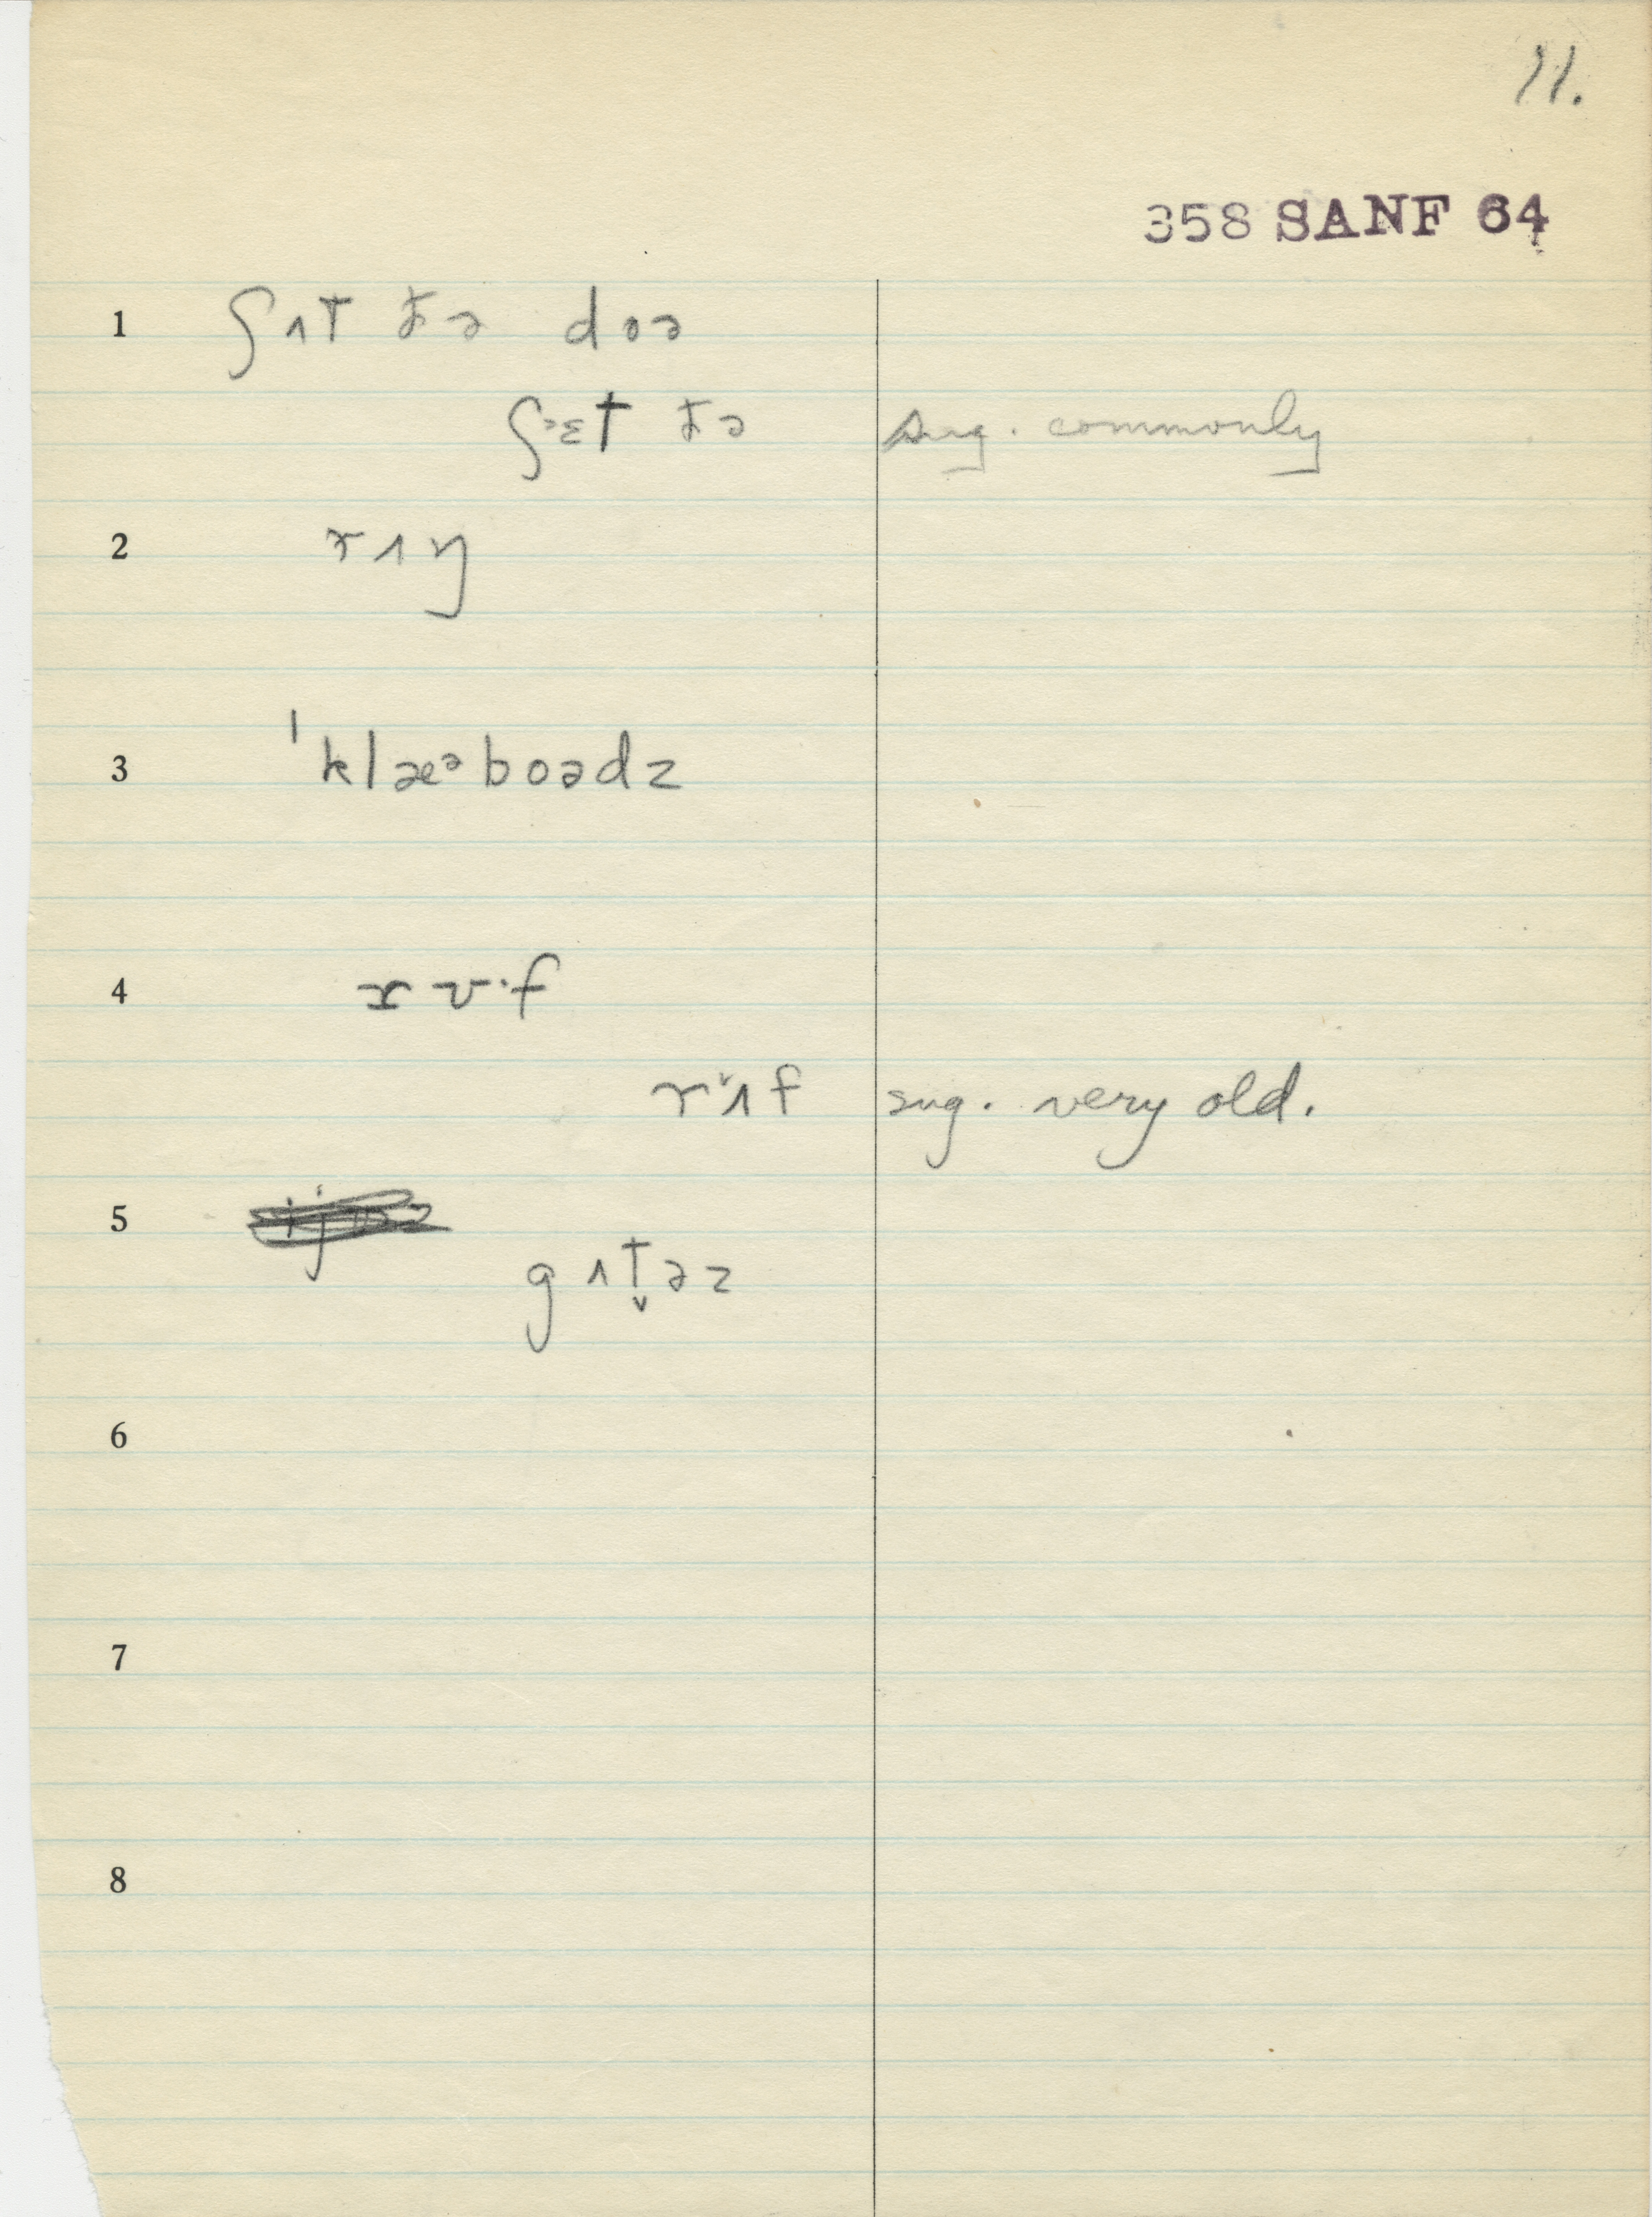 11.
358 SANF 64
1 ʃʌt ðə doə
ʃᵊɛt ðə sug. commonly
2 rʌɡ
3 ˈklæᵊboədz
4 ru·f
rʌf sug. very old.
5
gʌt̬əz
6
7
8